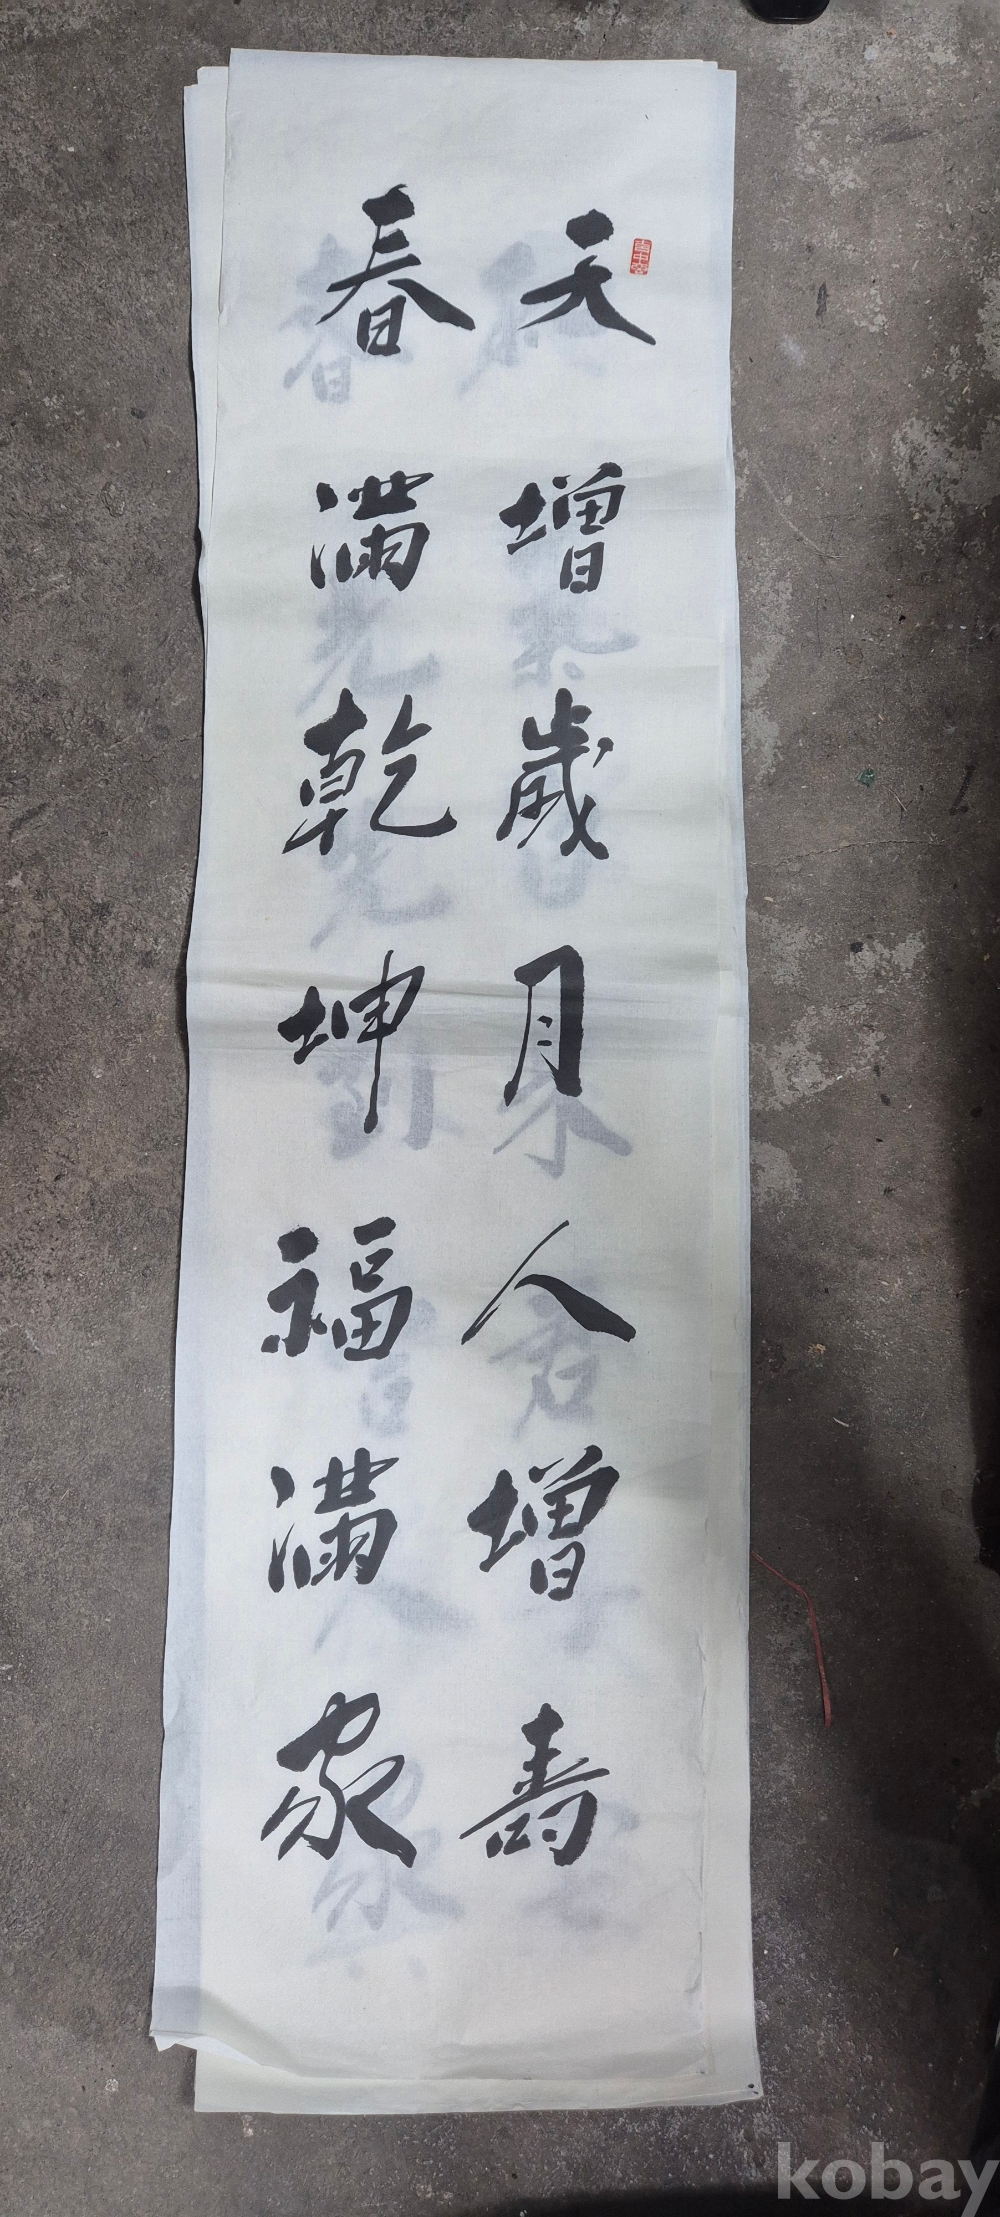 天增歲月人增壽
春滿乾坤福滿家
kobay